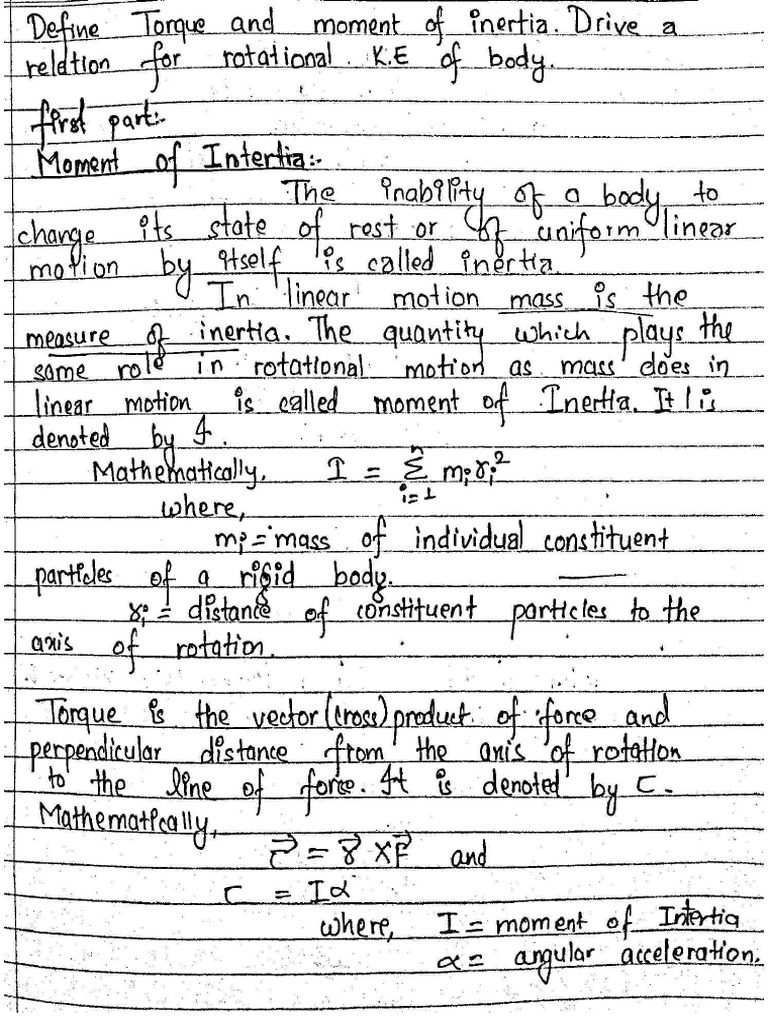 Define Torque and moment of inertia. Drive a
relation for rotational K.E of body.
first part:-
Moment of Intertia:-
The inability of a body to
change its state of rest or of uniform linear
motion by itself is called inertia.
In linear motion mass is the
measure of inertia. The quantity which plays the
same role in rotational motion as mass does in
linear motion is called moment of Inertia. It is
denoted by I.
Mathematically, I = n Σ i=1 mᵢrᵢ²
where,
mᵢ = mass of individual constituent
particles of a rigid body.
rᵢ = distance of constituent particles to the
axis of rotation.
Torque is the vector (cross) product of force and
perpendicular distance from the axis of rotation
to the line of force. It is denoted by τ.
Mathematically,
τ⃗ = r⃗ × F⃗ and
τ = Iα
where, I = moment of Intertia
α = angular acceleration.